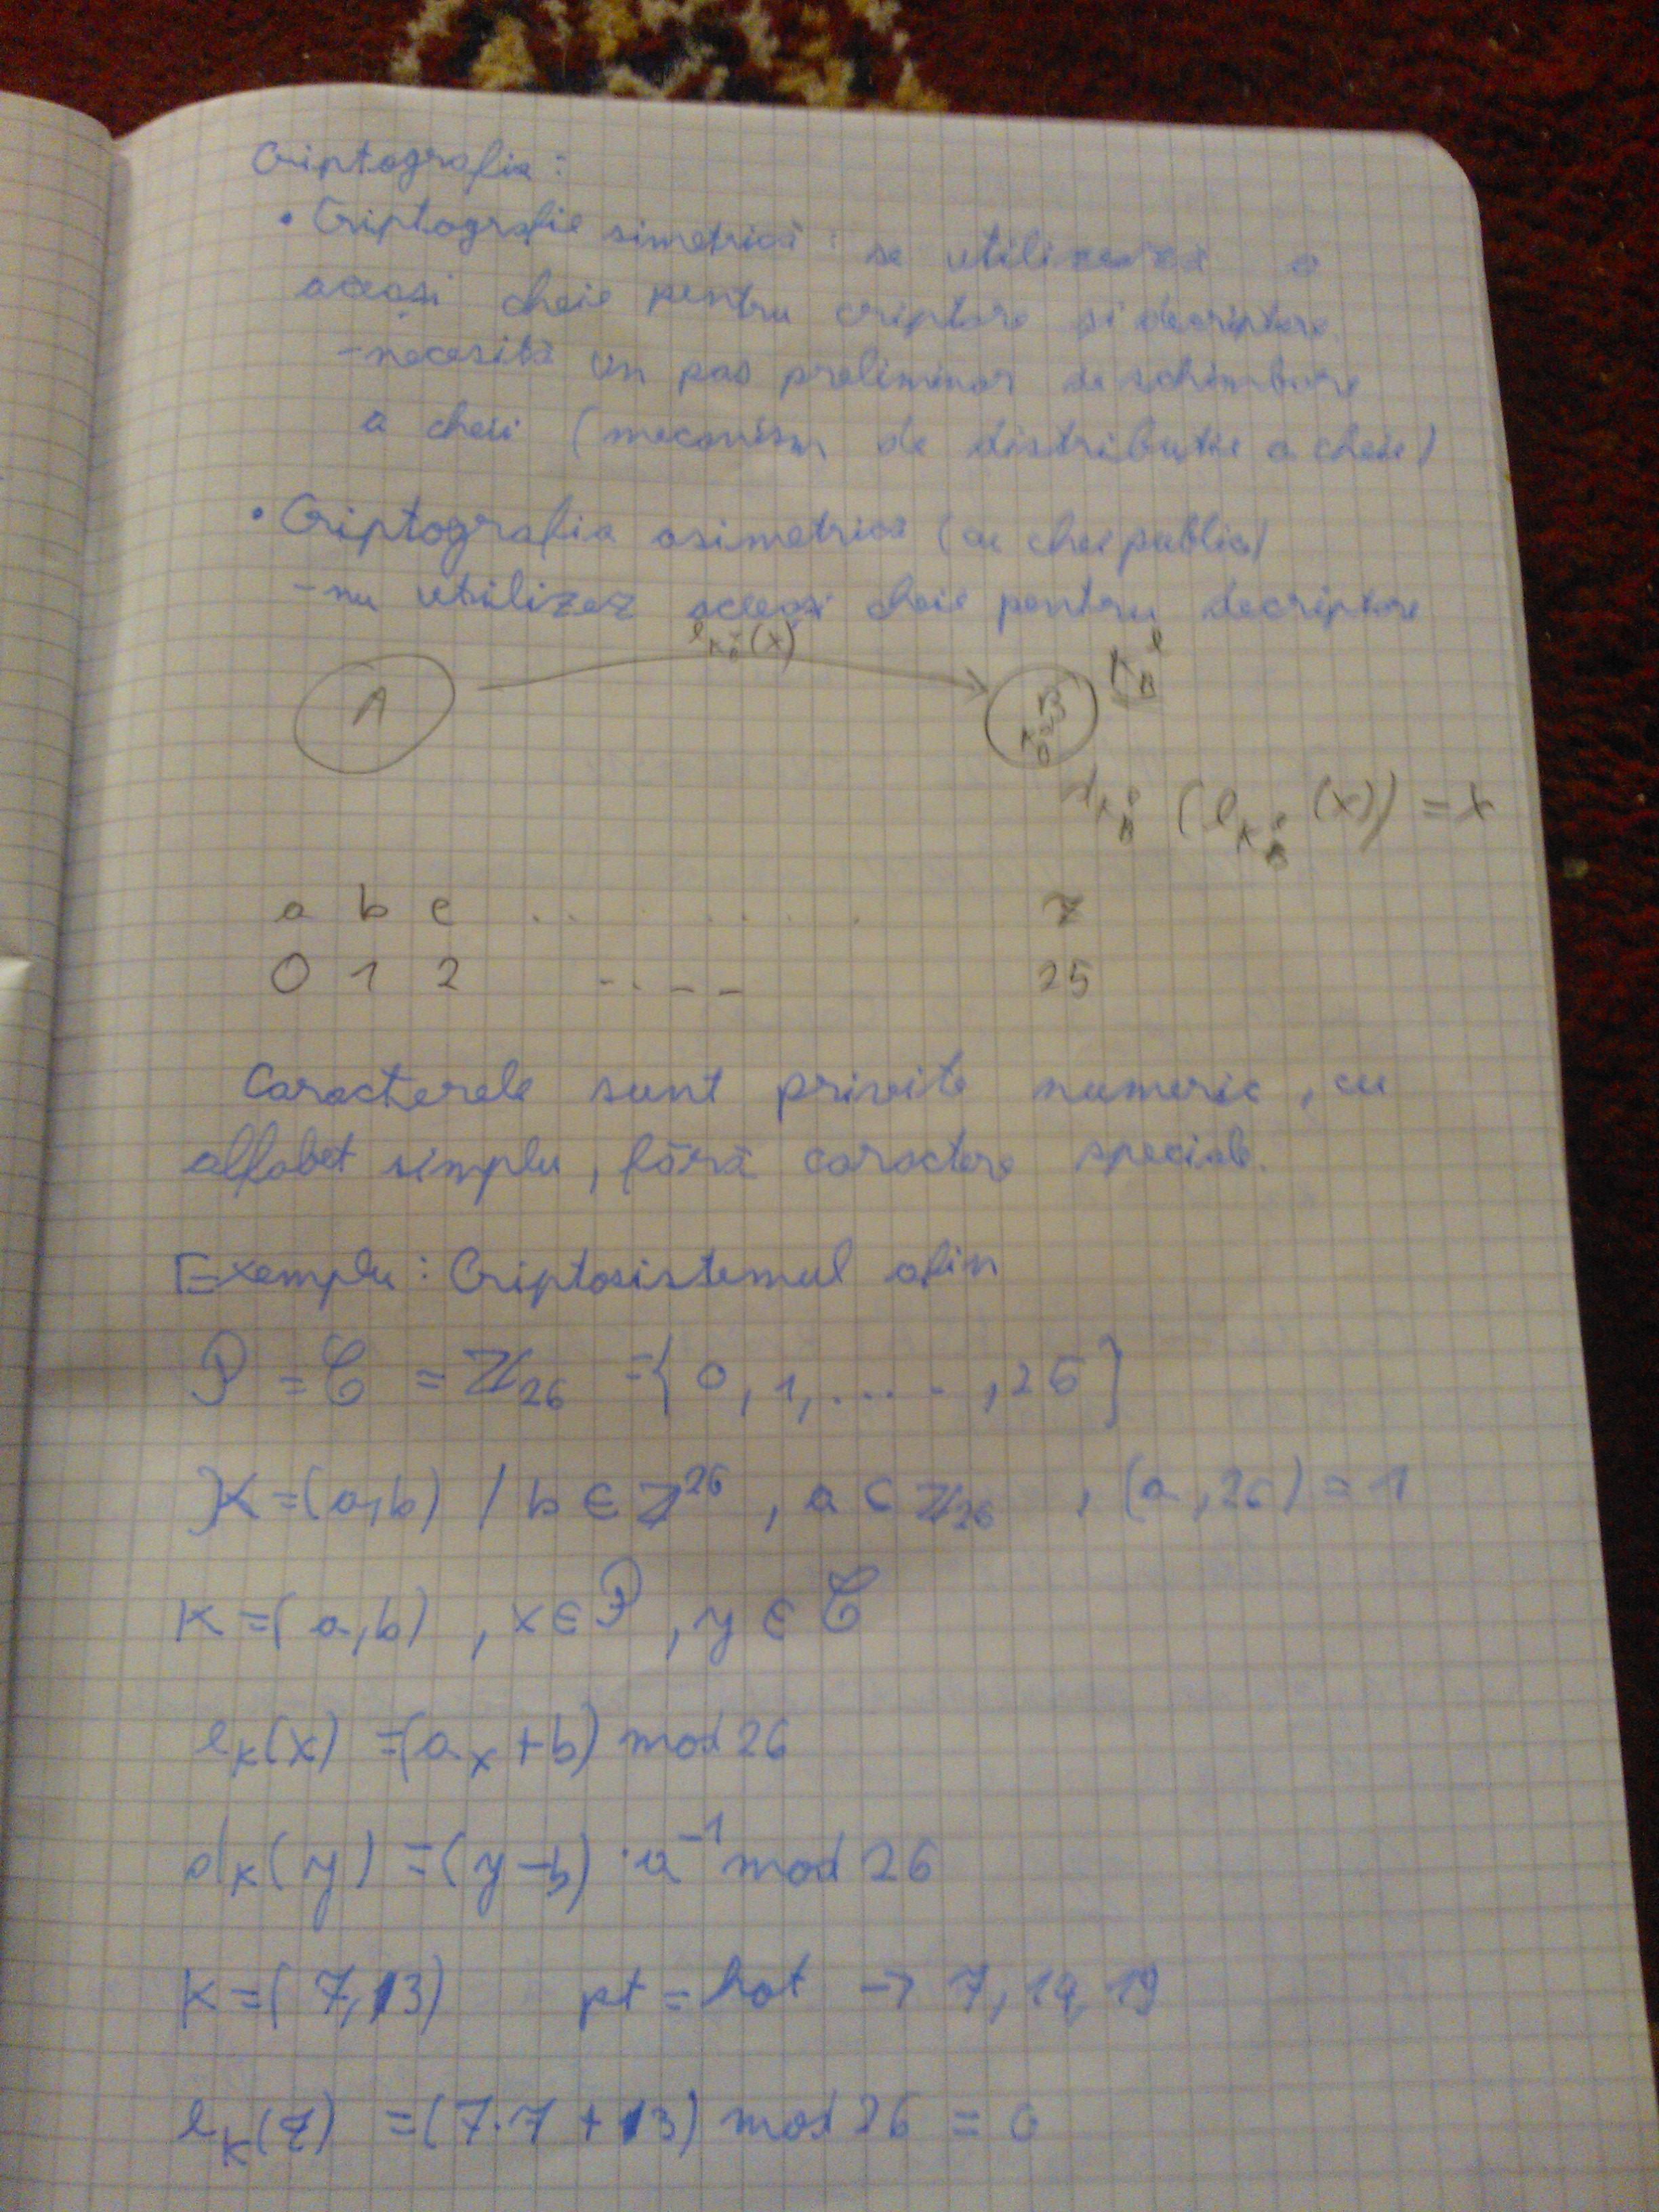 Criptografia:
• Criptografie simetrică: se utilizează o
aceeași cheie pentru criptare și decriptare.
-necesită un pas preliminar de schimbare
a cheii (mecanism de distribuție a cheie)
• Criptografia asimetrică (cu chei publice)
-nu utilizez aceeași cheie pentru decriptare
A
(x)
d (e (x)) = x
a b c . . . . . . . z
0 1 2 - . - - 25
Caracterele sunt privite numeric, cu
alfabet simplu, fără caractere speciale.
Exemplu: Criptosistemul afin
P = C = Z26 = {0, 1, ....., 25}
K = (a,b) / b ∈ Z^26, a ∈ Z26, (a, 26) = 1
K = (a,b), x ∈ P, y ∈ C
eK(x) = (ax + b) mod 26
dK(y) = (y-b) · a^-1 mod 26
K = (7, 13) pt = hot → 7, 14, 19
eK(7) = (7·7 + 13) mod 26 =